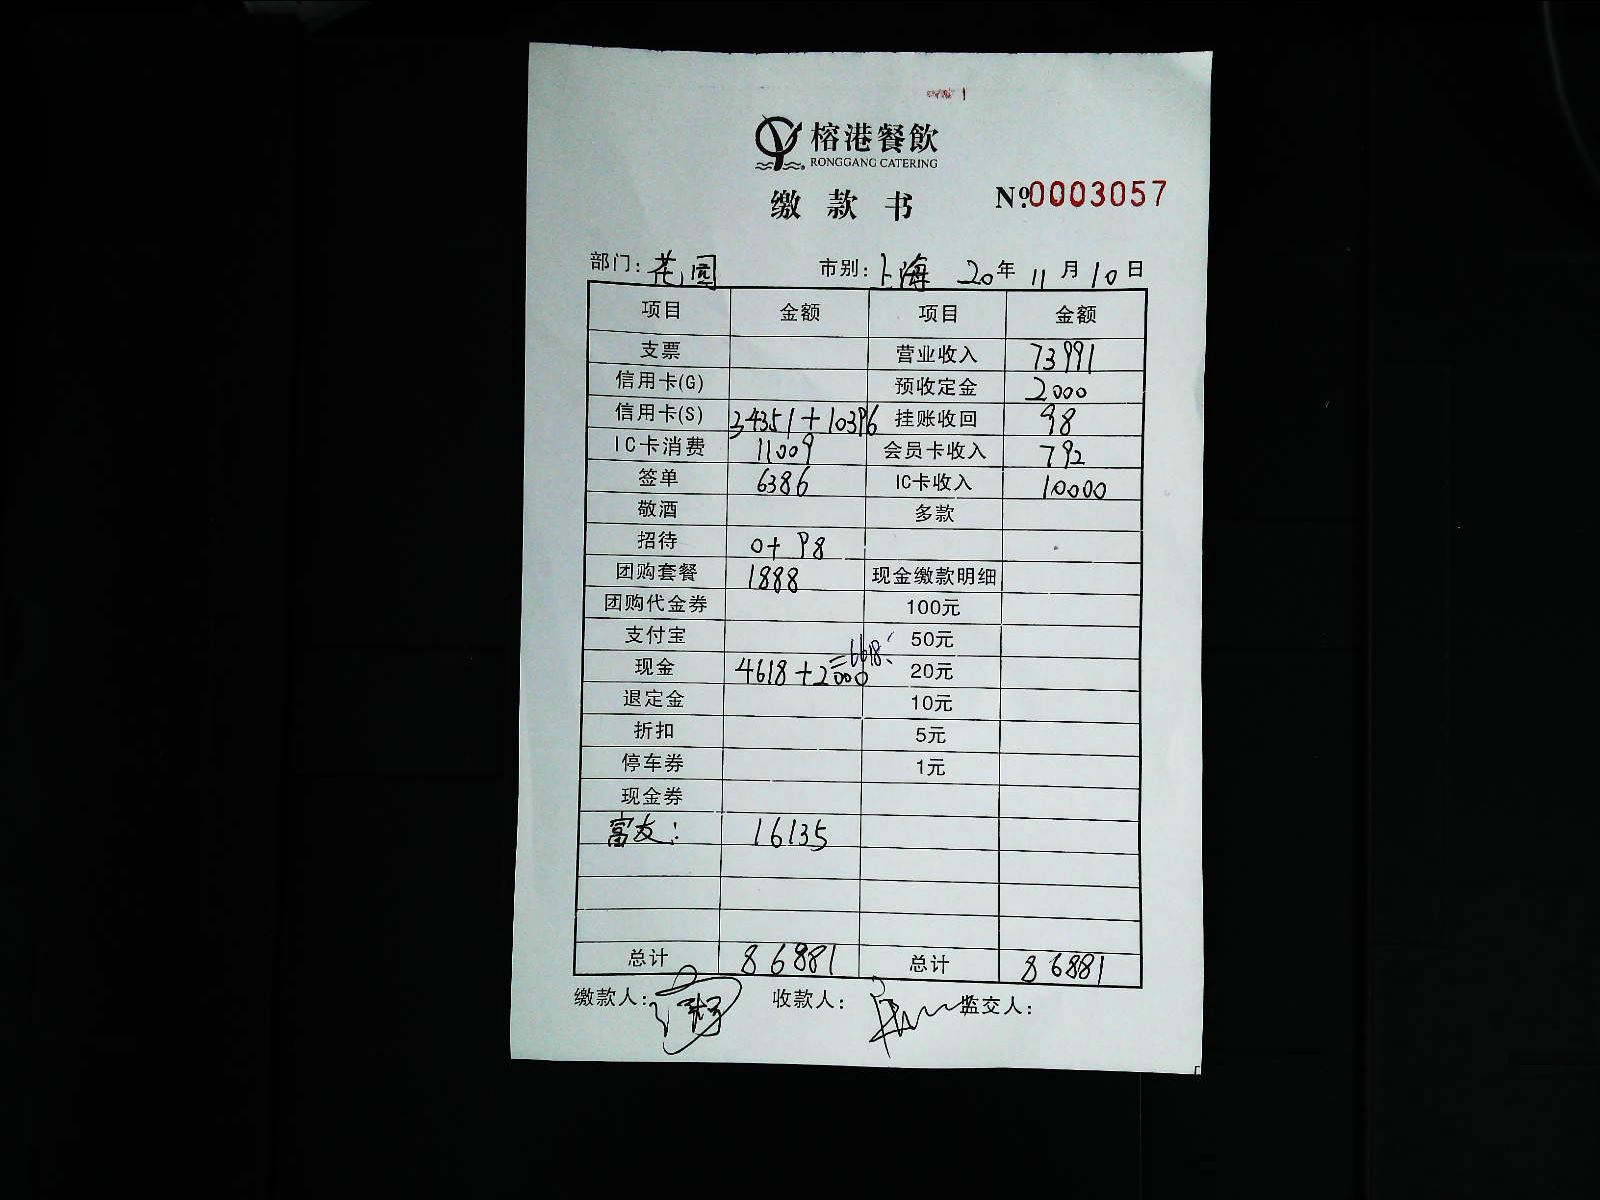 榕港餐飲
RONGGANG CATERING
缴款书 Nº:0003057
部门:花园 市别:上海 20年11月10日
项目 金额 项目 金额
支票 营业收入 73991
信用卡(G) 预收定金 2000
信用卡(S) 34351+10396 挂账收回 98
IC卡消费 11009 会员卡收入 792
签单 6386 IC卡收入 10000
敬酒 多款
招待 0+98
团购套餐 1888 现金缴款明细
团购代金券 100元
支付宝 50元
现金 4618+2000=6618 20元
退定金 10元
折扣 5元
停车券 1元
现金券
富友: 16135
总计 86881 总计 86881
缴款人: 收款人: 监交人: